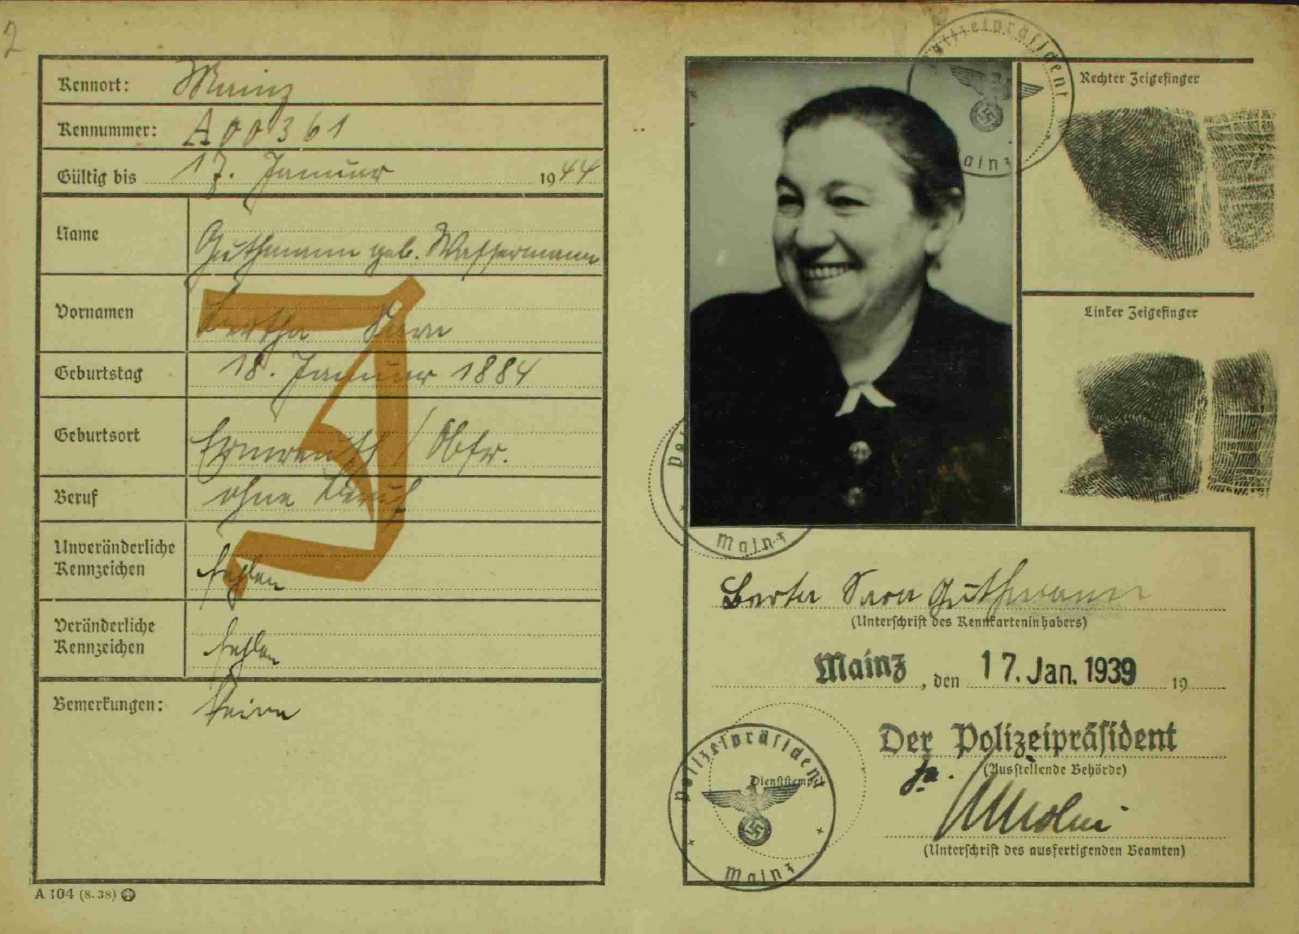 2
Kennort: Mainz
Kennummer: A00361
Gültig bis 17. Januar 1944
Name Guthmann geb. Wassermann
Vornamen Bertha Sara
Geburtstag 18. Januar 1884
Geburtsort Ermreuth / Obfr.
Beruf ohne Beruf
Unveränderliche
Kennzeichen fehlen
Veränderliche
Kennzeichen fehlen
Bemerkungen: Keine
J
A 104 (8. 38)
Polizeipräsident
Mainz
Rechter Zeigefinger
Linker Zeigefinger
Mainz
Berta Sara Guthmann
(Unterschrift des Kennkarteninhabers)
Mainz, den 17. Jan. 1939 19
Der Polizeipräsident
(Ausstellende Behörde)
Polizeipräsident
Dienststempel
Mainz
(Unterschrift des ausfertigenden Beamten)